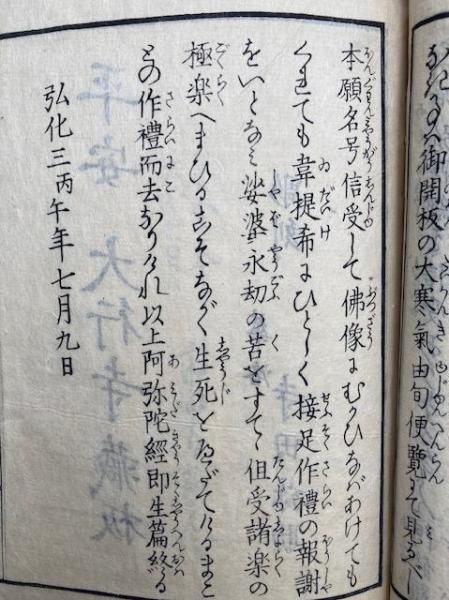 御開板の大寒氣由旬便覽にて見るべし
本願名号信受して佛像にむかひなばあけても
くれても韋提希にひとしく接足作禮の報謝
をいとなみ娑婆永劫の苦をすてゝ但受諸楽の
極楽へまひるこそながく生死をへだてけるまこ
との作禮而去なりけれ以上阿弥陀經即生篇終る
弘化三丙午年七月九日